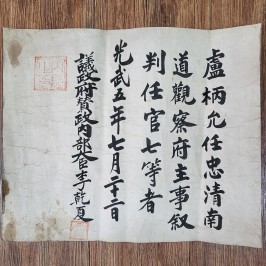 盧柄允任忠清南
道觀察府主事叙
判任官七等者
光武五年七月二十二日
議政府贊政內部大臣李乾夏